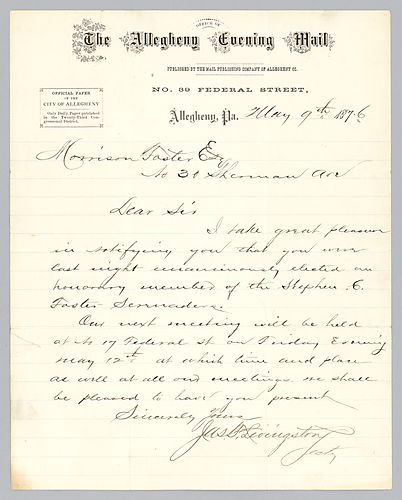 OFFICE OF
The Allegheny Evening Mail
PUBLISHED BY THE MAIL PUBLISHING COMPANY OF ALLEGHENY CO.
NO. 39 FEDERAL STREET,
OFFICIAL PAPER
OF THE
CITY OF ALLEGHENY
Only Daily Paper published
in the Twenty-Third Con-
gressional District.
Allegheny, Pa. May 9th 1876
Morrison Foster Esq
No 31 Sherman Ave
Dear Sir
I take great pleasure
in notifying you that you were
last night unanimously elected an
honorary member of the Stephen C.
Foster Serenaders.
Our next meeting will be held
at No 17 Federal St on Friday Evening
May 12th at which time and place
as well at all our meetings we shall
be pleased to have you present
Sincerely Yours
Jas. F. Livingston
Secty